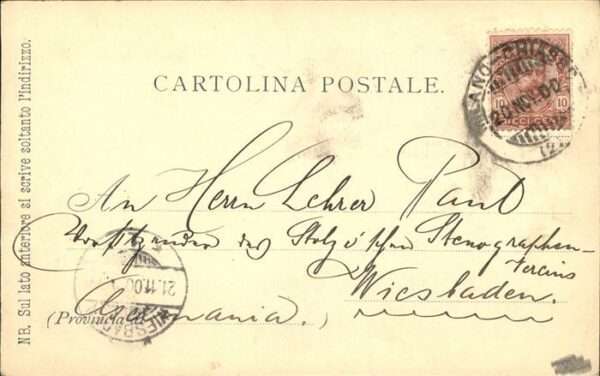 MILANO-CHIASSO
20 NOV. 00
(2
10 10
CARTOLINA POSTALE.
NB. Sul lato anteriore si scrive soltanto l'indirizzo.
An Herrn Lehrer Paul
Vorsitzender des Stolze'schen Stenographen-
Vereins
Wiesbaden.
(Provincia d
Germania.)
WIESBADEN
21.11.00